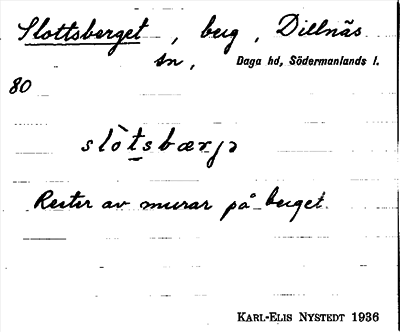 Slottsberget, berg, Dillnäs
sn, Daga hd, Södermanlands l.
80
slòtsbærjə
Rester av murar på berget.
KARL-ELIS NYSTEDT 1936